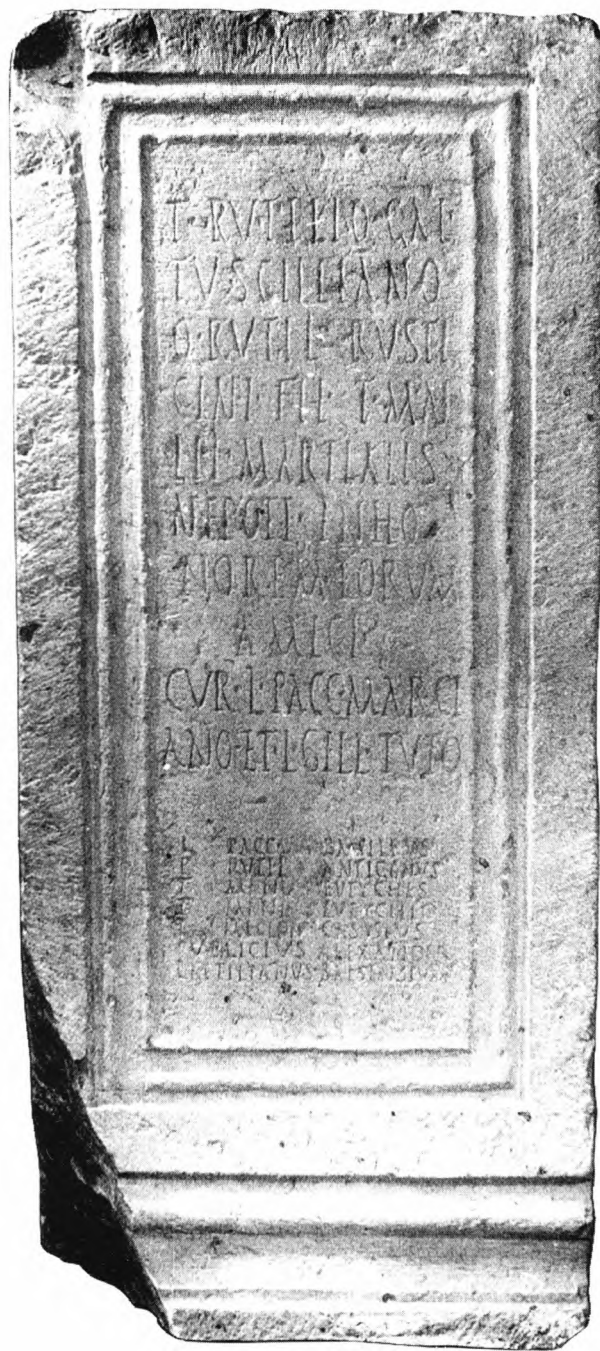 T · RVTILIO · GAL ·
TVSCILLIANO
Q · RVTIL · RVSTI
CINI · FIL · T · MANI
LII · MARTIALIS
NEPOTI · INHO
NOREM · LORVM
AMICI
CVR · L · PACC · MARCI
ANO · ET · L · GELL · TVTO
L PACC BASILEVS
RVTIL ANTIGONVS
T MANL EVTYCHES
MANL EVTYCHIO
CASSIVS
PVBLICIVS ALEXANDER